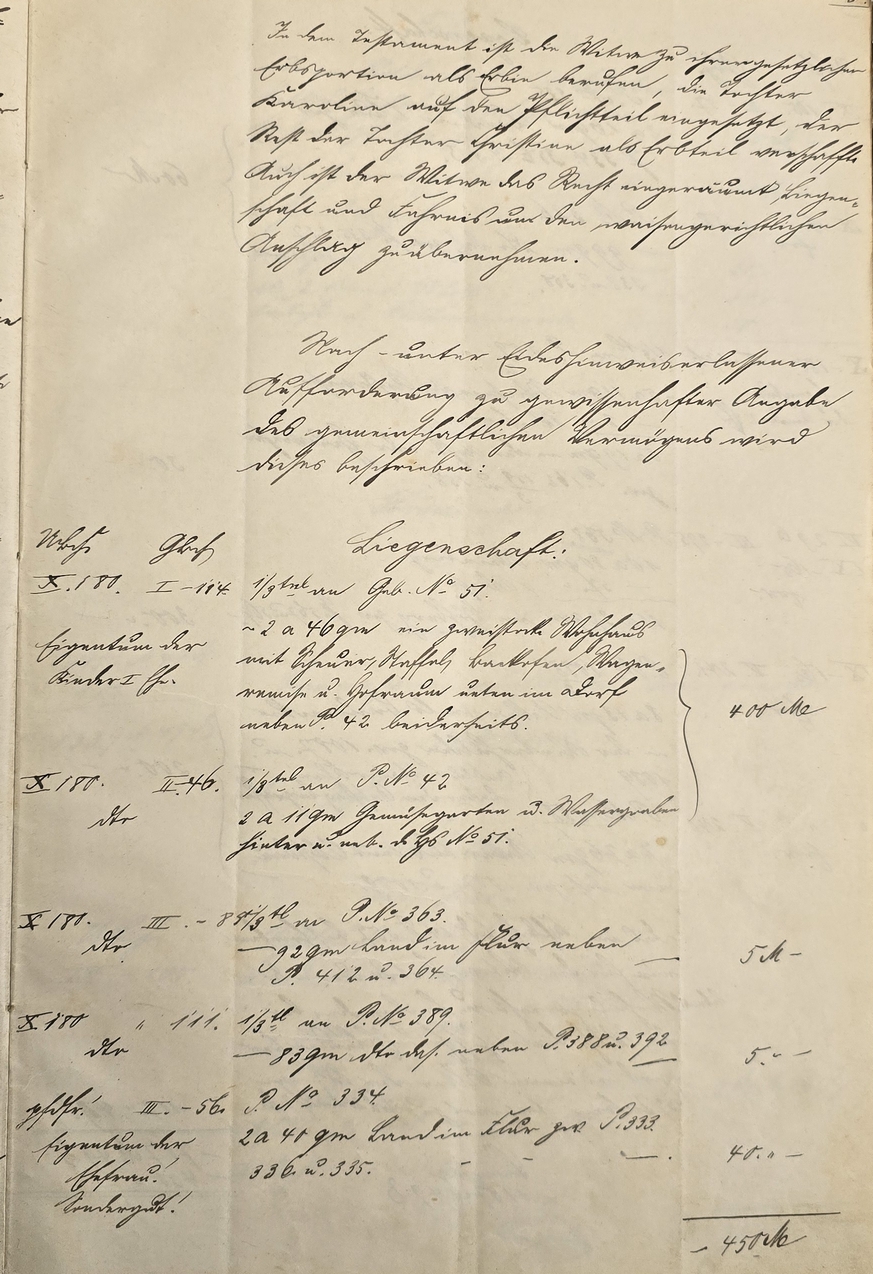 In dem Testament ist die Witwe zu ihrem gesetzlichen
Erbsportion als Erbin berufen, die Tochter
Karoline auf den Pflichtteil eingesetzt, der
Rest der Tochter Christine als Erbteil verschafft.
Auch ist der Witwe das Recht eingeräumt, Liegen-
schaft und Fahrnis um den waisengerichtlichen
Anschlag zu übernehmen.
Nach - unter Eideshinweis erlassener
Aufforderung zu gewissenhafter Angabe
des gemeinschaftlichen Vermögens wird
dieses beschrieben:
Liegenschaft:
X. 180. I - 114. 1/3tel an Geb. No 51.
Eigentum der
Kinder I Ehe.
~ 2 a 46 qm ein zweistock. Wohnhaus
mit Scheuer, Staffel, Backofen, Wagen-
remise u. Hofraum unten im Dorf
neben P. 42 beiderseits.
400 M
X 180. II 46. 1/3tel an P. No 42
dto 2 a 11 qm Gemüsegarten u. Wassergraben
hinter u. neb. d. Hs No 51.
X 180. III. - 85 1/3tl an P. No 363.
dto — 92 qm Land im Flur neben
P. 412 u. 364. 5 M -
X 180 " 111. 1/3tl an P. No 389.
dto — 83 qm dto das. neben P. 388 u. 392 5. " -
III. - 56. P. No 334.
Eigentum der
Ehefrau!
Sondergut!
2 a 40 qm Land im Flur zw. P. 333.
336 u. 335. 40. " -
- 450 M